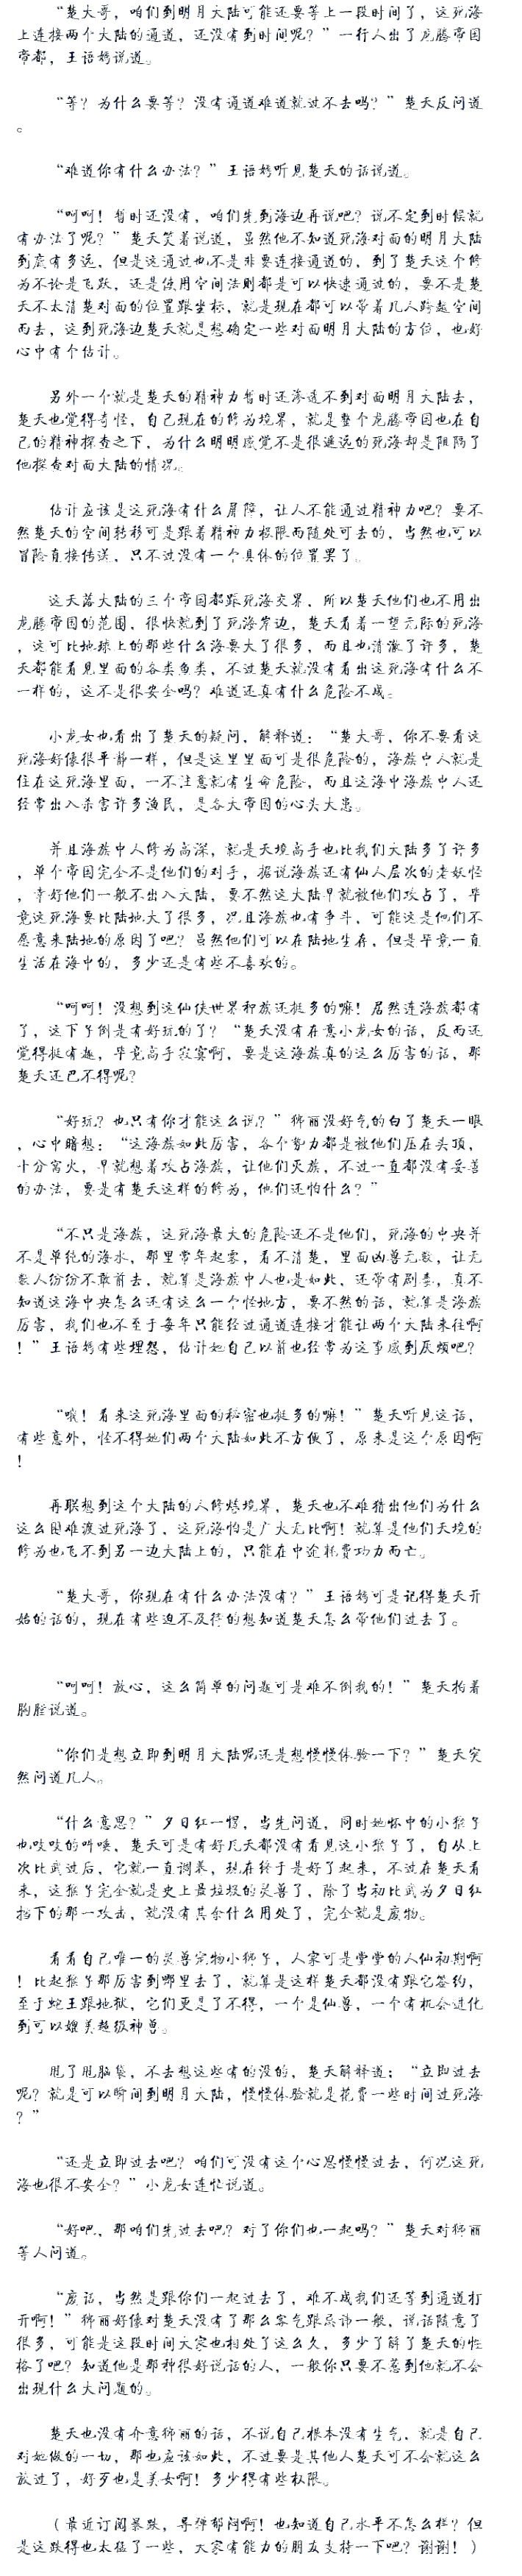 “楚大哥，咱们到明月大陆可能还要等上一段时间了，这死海
上连接两个大陆的通道，还没有到时间呢？”一行人出了龙腾帝国
帝都，王语嫣说道。
“等？为什么要等？没有通道难道就过不去吗？”楚天反问道
。
“难道你有什么办法？”王语嫣听见楚天的话说道。
“呵呵！暂时还没有，咱们先到海边再说吧？说不定到时候就
有办法了呢？”楚天笑着说道，虽然他不知道死海对面的明月大陆
到底有多远，但是这通过也不是非要连接通道的，到了楚天这个修
为不论是飞跃，还是使用空间法则都是可以快速通过的，要不是楚
天不太清楚对面的位置跟坐标，就是现在都可以带着几人跨越空间
而去，这到死海边楚天就是想确定一些对面明月大陆的方位，也好
心中有个估计。
另外一个就是楚天的精神力暂时还渗透不到对面明月大陆去，
楚天也觉得奇怪，自己现在的修为境界，就是整个龙腾帝国也在自
己的精神探查之下，为什么明明感觉不是很遥远的死海却是阻隔了
他探查对面大陆的情况。
估计应该是这死海有什么屏障，让人不能通过精神力吧？要不
然楚天的空间转移可是跟着精神力极限而随处可去的，当然也可以
冒险直接传送，只不过没有一个具体的位置罢了。
这天落大陆的三个帝国都跟死海交界，所以楚天他们也不用出
龙腾帝国的范围，很快就到了死海岸边，楚天看着一望无际的死海
，这可比地球上的那些什么海要大了很多，而且也清澈了许多，楚
天都能看见里面的各类鱼类，不过楚天就没有看出这死海有什么不
一样的，这不是很安全吗？难道还真有什么危险不成。
小龙女也看出了楚天的疑问，解释道：“楚大哥，你不要看这
死海好像很平静一样，但是这里里面可是很危险的，海族中人就是
住在这死海里面，一不注意就有生命危险，而且这海中海族中人还
经常出入杀害许多渔民，是各大帝国的心头大患。
并且海族中人修为高深，就是天境高手也比我们大陆多了许多
，单个帝国完全不是他们的对手，据说海族还有仙人层次的老妖怪
，幸好他们一般不出入大陆，要不然这大陆早就被他们攻占了，毕
竟这死海要比陆地大了很多，况且海族也有争斗，可能这是他们不
愿意来陆地的原因了吧？虽然他们可以在陆地生存，但是毕竟一直
生活在海中的，多少还是有些不喜欢的。
“呵呵！没想到这仙侠世界种族还挺多的嘛！居然连海族都有
了，这下子倒是有好玩的了？“楚天没有在意小龙女的话，反而还
觉得挺有趣，毕竟高手寂寞啊，要是这海族真的这么厉害的话，那
楚天还巴不得呢？
“好玩？也只有你才能这么说？”狮丽没好气的白了楚天一眼
，心中暗想：“这海族如此厉害，各个势力都是被他们压在头顶，
十分窝火，早就想着攻占海族，让他们灭族，不过一直都没有妥善
的办法，要是有楚天这样的修为，他们还怕什么？”
“不只是海族，这死海最大的危险还不是他们，死海的中央并
不是单纯的海水，那里常年起雾，看不清楚，里面凶兽无数，让无
数人纷纷不敢前去，就算是海族中人也是如此，还带有剧毒，真不
知道这海中央怎么还有这么一个怪地方，要不然的话，就算是海族
厉害，我们也不至于每年只能经过通道连接才能让两个大陆来往啊
！”王语嫣有些埋怨，估计她自己以前也经常为这事感到厌烦吧？
“哦！看来这死海里面的秘密也挺多的嘛！”楚天听见这话，
有些意外，怪不得她们两个大陆如此不方便了，原来是这个原因啊
！
再联想到这个大陆的人修炼境界，楚天也不难猜出他们为什么
这么困难渡过死海了，这死海怕是广大无比啊！就算是他们天境的
修为也飞不到另一边大陆上的，只能在中途耗费功力而亡。
“楚大哥，你现在有什么办法没有？”王语嫣可是记得楚天开
始的话的，现在有些迫不及待的想知道楚天怎么带他们过去了。
“呵呵！放心，这么简单的问题可是难不倒我的！”楚天拍着
胸膛说道。
“你们是想立即到明月大陆呢还是想慢慢体验一下？”楚天突
然问道几人。
“什么意思？”夕日红一愣，当先问道，同时她怀中的小猴子
也吱吱的叫唤，楚天可是有好几天都没有看见这小猴子了，自从上
次比武过后，它就一直调养，现在终于是好了起来，不过在楚天看
来，这猴子完全就是史上最垃圾的灵兽了，除了当初比武为夕日红
挡下的那一攻击，就没有其余什么用处了，完全就是废物。
看看自己唯一的灵兽宠物小狮子，人家可是堂堂的人仙初期啊
！比起猴子那厉害到哪里去了，就算是这样楚天都没有跟它签约，
至于蛇王跟地狱，它们更是了不得，一个是仙兽，一个有机会进化
到可以媲美超级神兽。
甩了甩脑袋，不去想这些有的没的，楚天解释道：“立即过去
呢？就是可以瞬间到明月大陆，慢慢体验就是花费一些时间过死海
？”
“还是立即过去吧？咱们可没有这个心思慢慢过去，何况这死
海也很不安全？”小龙女连忙说道。
“好吧、那咱们先过去吧？对了你们也一起吗？”楚天对狮丽
等人问道。
“废话，当然是跟你们一起过去了，难不成我们还等到通道打
开啊！”狮丽好像对楚天没有了那么客气跟忌讳一般，说话随意了
很多，可能是这段时间大家也相处了这么久，多少了解了楚天的性
格了吧？知道他是那种很好说话的人，一般你只要不惹到他就不会
出现什么大问题的。
楚天也没有介意狮丽的话，不说自己根本没有生气，就是自己
对她做的一切，那也应该如此，不过要是其他人楚天可不会就这么
放过了，好歹也是美女啊！多少得有些权限。
（最近订阅暴跌，导弹郁闷啊！也知道自己水平不怎么样？但
是这跌得也太猛了一些，大家有能力的朋友支持一下吧？谢谢！）